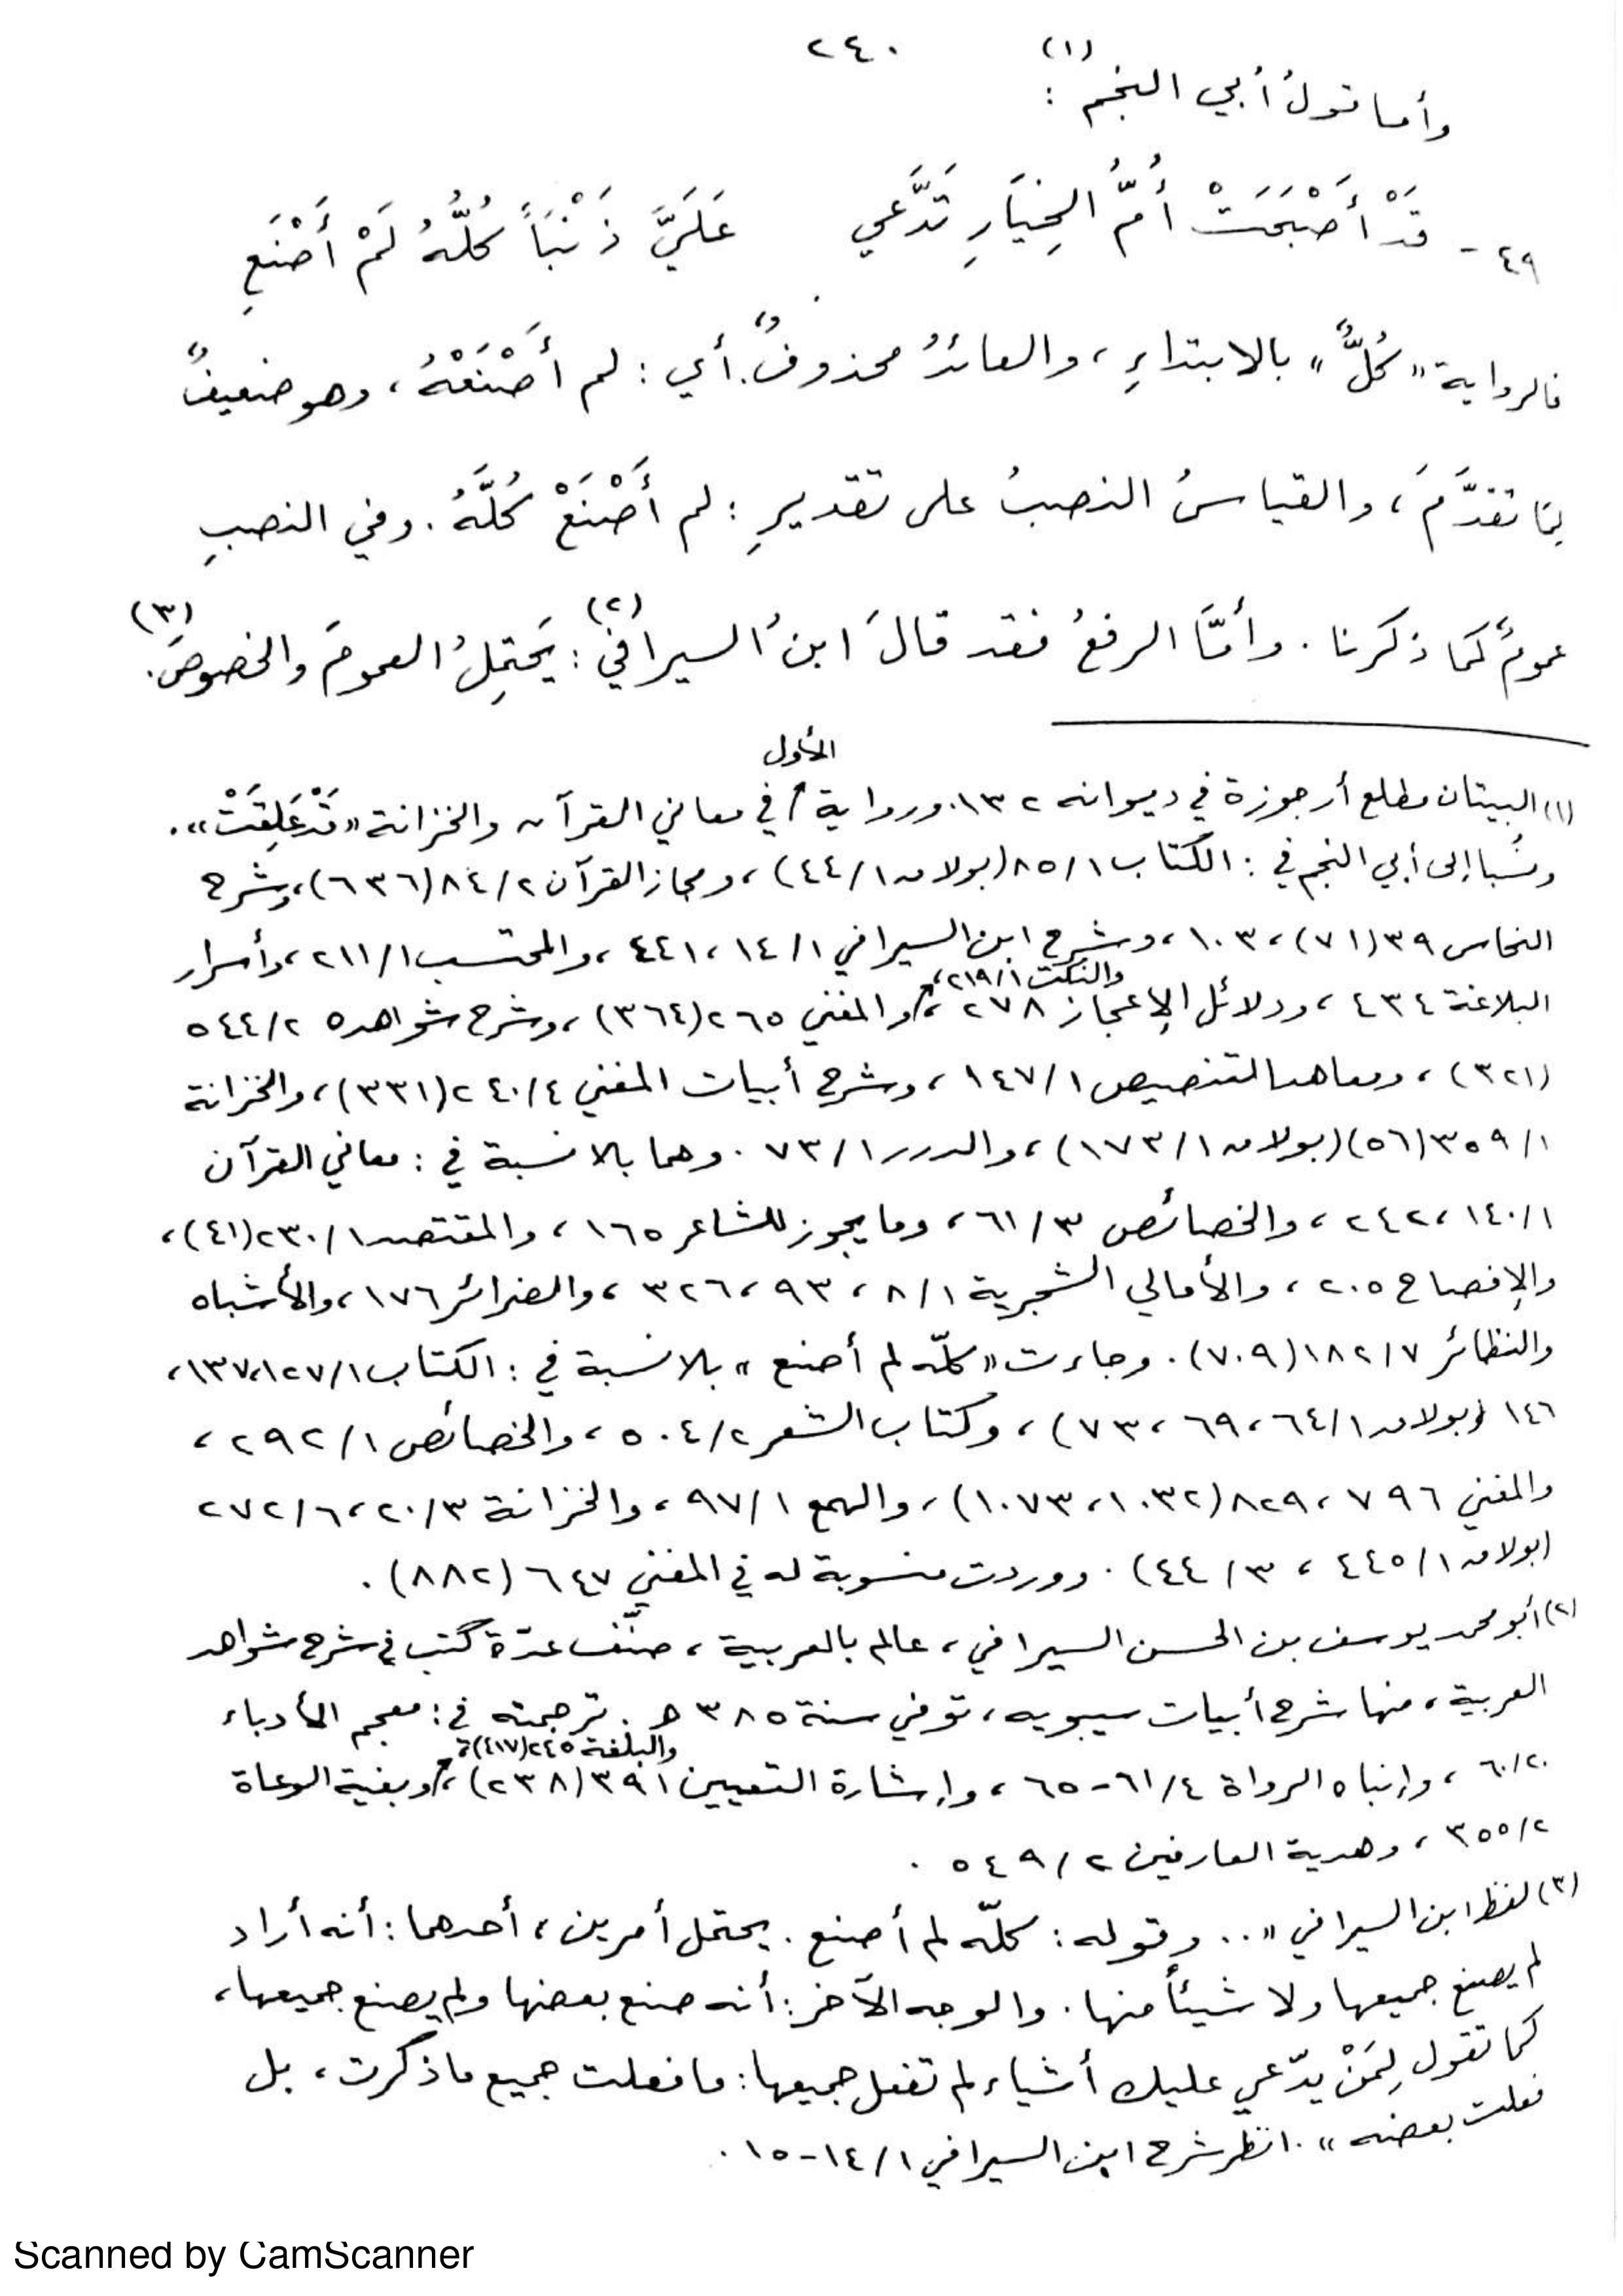 ٢٤٠
وأما قولُ أبي النجم(١):
٤٩- قَدْ أَصْبَحَتْ أُمُّ الخِيَارِ تَدَّعي عَلَيَّ ذَنْبَاً كُلُّهُ لَمْ أَصْنَعِ
فالرواية «كُلُّ» بالابتداءِ، والعائدُ محذوفٌ. أي: لم أَصْنَعْهُ، وهو ضعيفٌ
لِمَا تقدَّمَ، والقياسُ النصبُ على تقديرِ: لم أَصْنَعْ كُلَّهُ. وفي النصبِ
عمومٌ كَمَا ذكرنا. وأمَّا الرفعُ فقد قالَ ابنُ السيرافي(٢): يَحتمِلُ العمومَ والخصوصَ(٣).
(١) البيتان مطلع أرجوزة في ديوانه ١٣٢. ورواية الأول في معاني القرآن والخزانة «قَدْ عَلِقَتْ».
ونُسبا إلى أبي النجم في: الكتاب ٨٥/١ (بولاق ٤٤/١)، ومجاز القرآن ٨٤/٢ (٦٣٦)، وشرح
النحاس ٣٩ (٧١)، ١٠٣، وشرح ابن السيرافي ١٤/١، ٤٤١، والمحتسب ٢١١/١، وأسرار
البلاغة ٤٣٤، ودلائل الإعجاز ٢٧٨، والنكت ٢١٩/١، والمغني ٢٦٥ (٣٦٤)، وشرح شواهده ٥٤٤/٢
(٣٢١)، ومعاهد التنصيص ١٤٧/١، وشرح أبيات المغني ٢٤٠/٤ (٣٣١)، والخزانة
٣٥٩/١ (٥٦) (بولاق ١٧٣/١)، والدرر ٧٣/١. وهما بلا نسبة في: معاني القرآن
١٤٠/١، ٢٤٢، والخصائص ٦١/٣، وما يجوز للشاعر ١٦٥، والمقتصد ٢٣٠/١ (٤١)،
والإفصاح ٢٠٥، والأمالي الشجرية ٨/١، ٩٣، ٣٢٦، والضرائر ١٧٦، والأشباه
والنظائر ١٨٢/٧ (٧٠٩). وجاءت «كلّه لم أصنع» بلا نسبة في: الكتاب ١٢٧/١، ١٣٧،
١٤٦ (بولاق ٦٤/١، ٦٩، ٧٣)، وكتاب الشعر ٥٠٤/٢، والخصائص ٢٩٢/١،
والمغني ٧٩٦، ٨٢٩ (١٠٣٢، ١٠٧٣)، والهمع ٩٧/١، والخزانة ٢٠/٣، ٢٧٢/٦
(بولاق ٤٤٥/١، ٤٤/٣). ووردت منسوبة له في المغني ٦٤٧ (٨٨٢).
(٢) أبو محمد يوسف بن الحسن السيرافي، عالم بالعربية، صنّف عدّة كتب في شرح شواهد
العربية، منها شرح أبيات سيبويه، توفي سنة ٣٨٥ هـ. ترجمته في: معجم الأدباء
٦٠/٢٠، وإنباه الرواة ٦١/٤-٦٥، وإشارة التعيين ٣٩١ (٢٣٨)، والبلغة ٢٤٥ (٤١٧)، وبغية الوعاة
٣٥٥/٢، وهدية العارفين ٥٤٩/٢.
(٣) لفظ ابن السيرافي «.. وقوله: كلّه لم أصنع. يحتمل أمرين، أحدهما: أنه أراد
لم يصنع جميعها ولا شيئاً منها. والوجه الآخر: أنه صنع بعضها ولم يصنع جميعها،
كما تقول لِمَنْ يدّعي عليك أشياء لم تفعل جميعها: ما فعلت جميع ما ذكرت، بل
فعلت بعضه». انظر شرح ابن السيرافي ١٤/١-١٥.
Scanned by CamScanner